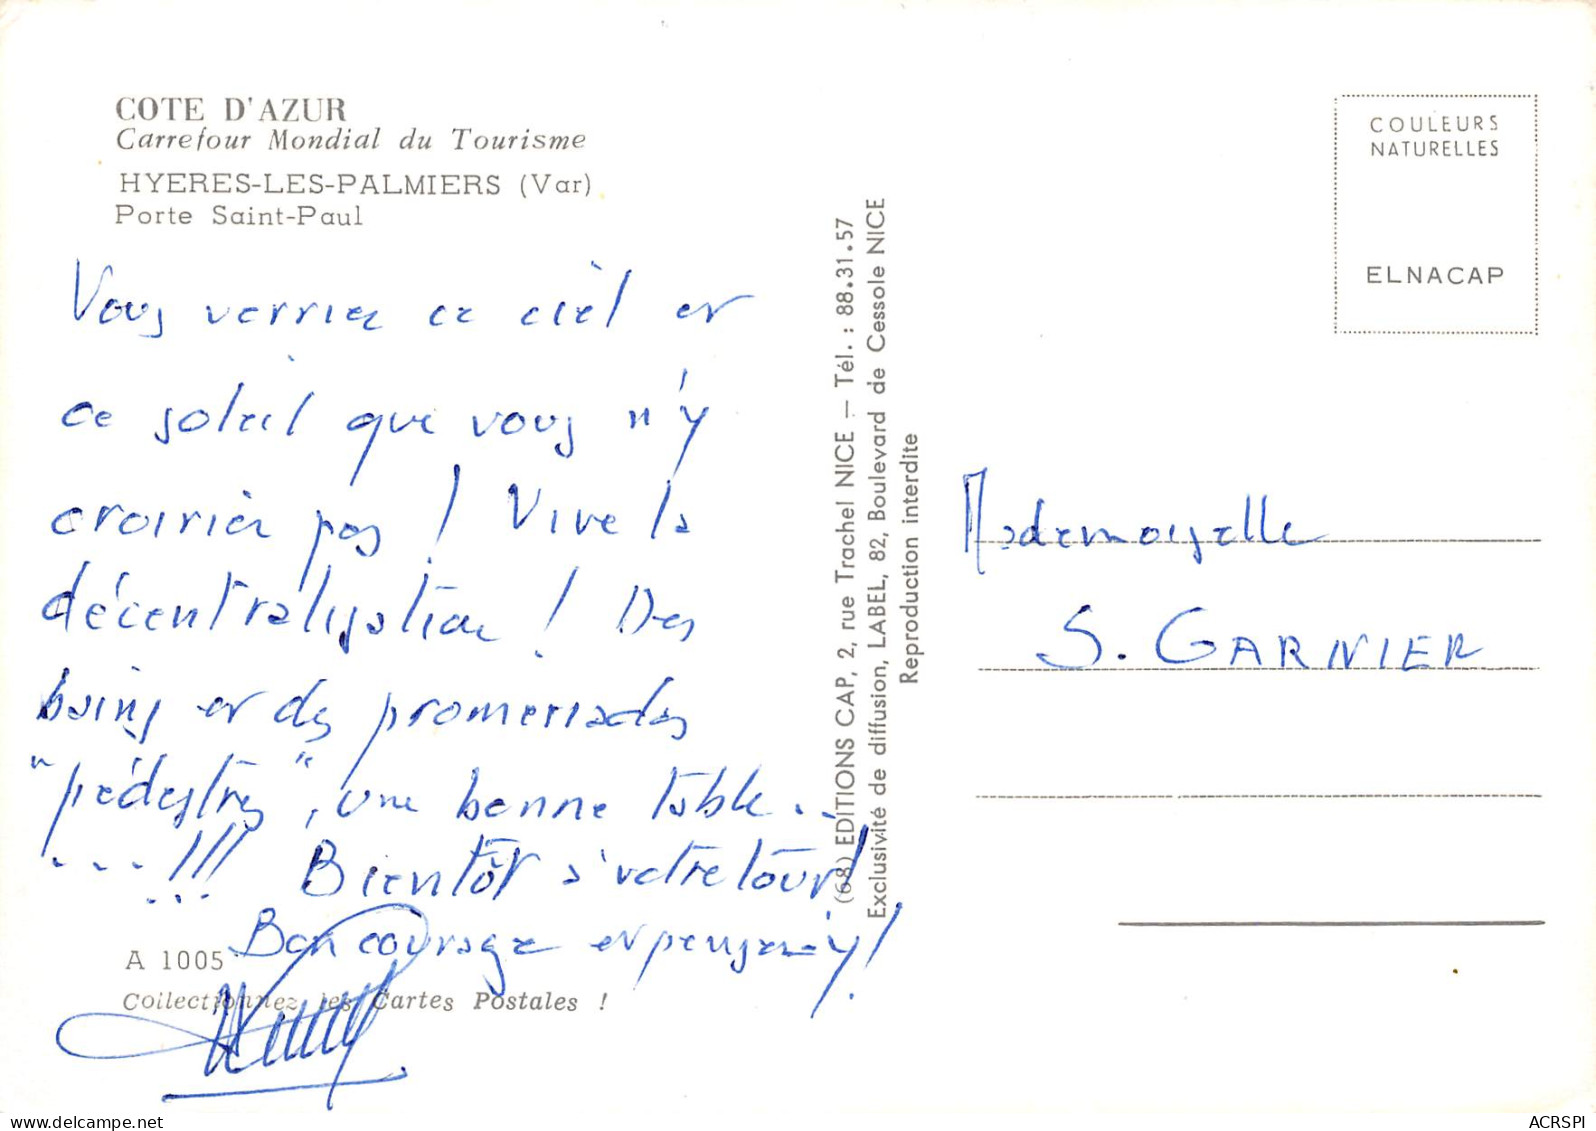 COTE D'AZUR
Carrefour Mondial du Tourisme
HYERES-LES-PALMIERS (Var)
Porte Saint-Paul
Vous verriez ce ciel et
ce soleil que vous n'y
croiriez pas ! Vive la
décentralisation ! Des
bains et des promenades
"pédestres", une bonne table ..
...!!! Bientôt à votre tour !
Bon courage et pensez-y !
A 1005
Collectionnez les Cartes Postales !
(68) EDITIONS CAP, 2, rue Trachel NICE — Tél. : 88.31.57
Exclusivité de diffusion, LABEL, 82, Boulevard de Cessole NICE
Reproduction interdite
COULEURS
NATURELLES
ELNACAP
Mademoiselle
S. GARNIER
ACRSPI